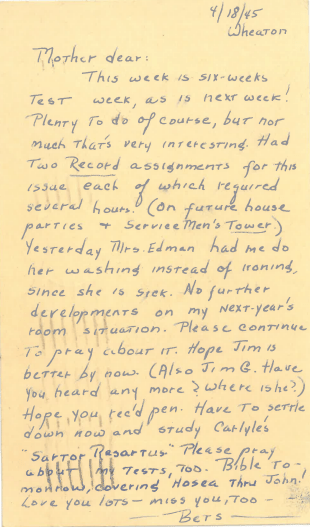 4/18/45
Wheaton
Mother dear:
This week is six-weeks
test week, as is next week!
Plenty to do of course, but not
much that's very interesting. Had
two Record assignments for this
issue each of which required
several hours. (On future house
parties + ServiceMen's Tower.)
Yesterday Mrs. Edman had me do
her washing instead of ironing,
since she is sick. No further
developments on my next-year's
room situation. Please continue
to pray about it. Hope Jim is
better by now. (Also Jim G. Have
you heard any more? Where is he?)
Hope you rec'd pen. Have to settle
down now and study Carlyle's
"Sartor Resartus" Please pray
about my tests, too. Bible to-
morrow, covering Hosea thru John!
Love you lots - miss you, too -
Bets